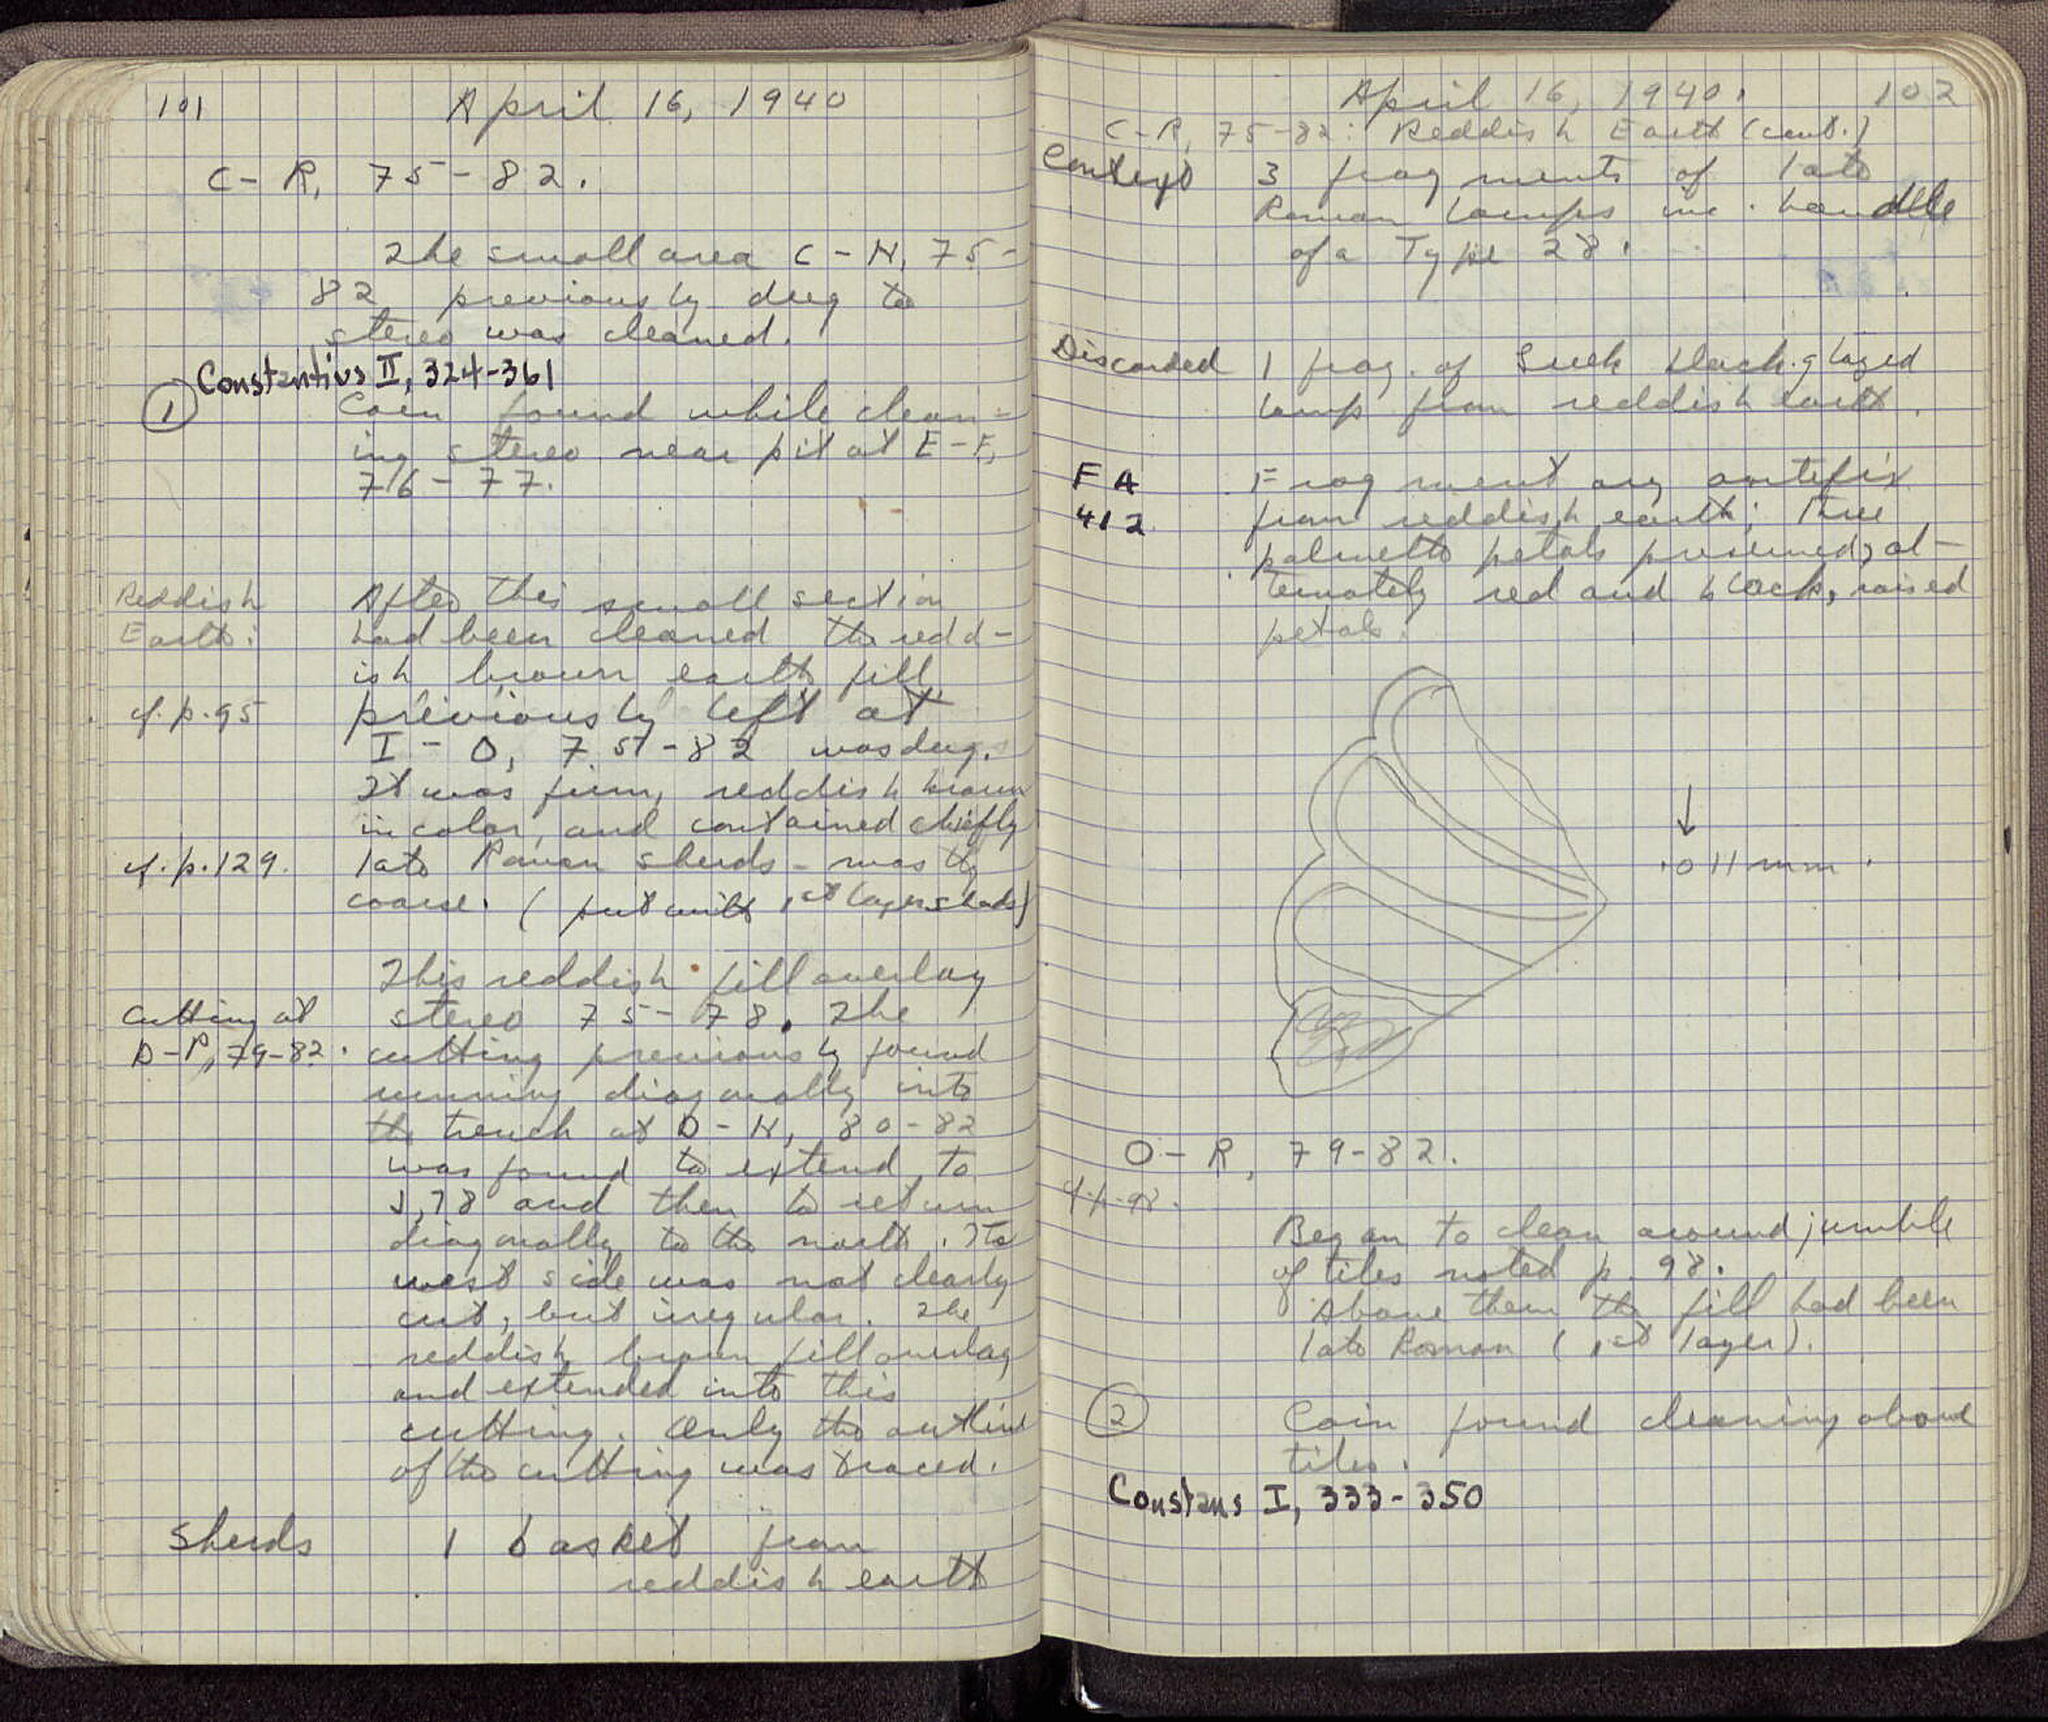 101
April 16, 1940
C - R, 75 - 82.
The small area C - H, 75 -
82 previously dug to
stereo was cleaned.
Constantius II, 324-361
1
Coin found while clean-
ing stereo near pit at E - F,
76 - 77.
Reddish
Earth:
After this small section
had been cleaned the redd-
ish brown earth fill
cf. p. 95
previously left at
I - O, 75 - 82 was dug.
It was firm, reddish brown
in color, and contained chiefly
cf. p. 129.
late Roman sherds - mostly
coarse. (put with 1st layer sherds)
This reddish fill overlay
Cutting at
D-P, 79-82.
stereo 75 - 78. The
cutting previously found
running diagonally into
the trench at D - H, 80 - 82
was found to extend to
J, 78 and then to return
diagonally to the north. Its
west side was not clearly
cut, but irregular. The
reddish brown fill overlay
and extended into this
cutting. Only the outline
of the cutting was traced.
Sherds
1 basket from
reddish earth
April 16, 1940.
102
C-R, 75-82: Reddish Earth (cont.)
Context
3 fragments of late
Roman lamps inc. handle
of a Type 28.
Discarded
1 frag. of Greek black-glazed
lamp from reddish earth.
FA
412
Fragmentary antefix
from reddish earth; three
palmette petals preserved, al-
ternately red and black, raised
petals.
.011 mm.
O - R, 79-82.
cf. p. 98.
Began to clean around jumble
of tiles noted p. 98.
Above them the fill had been
late Roman (1st layer).
2
Coin found cleaning above
tiles.
Constans I, 333-350